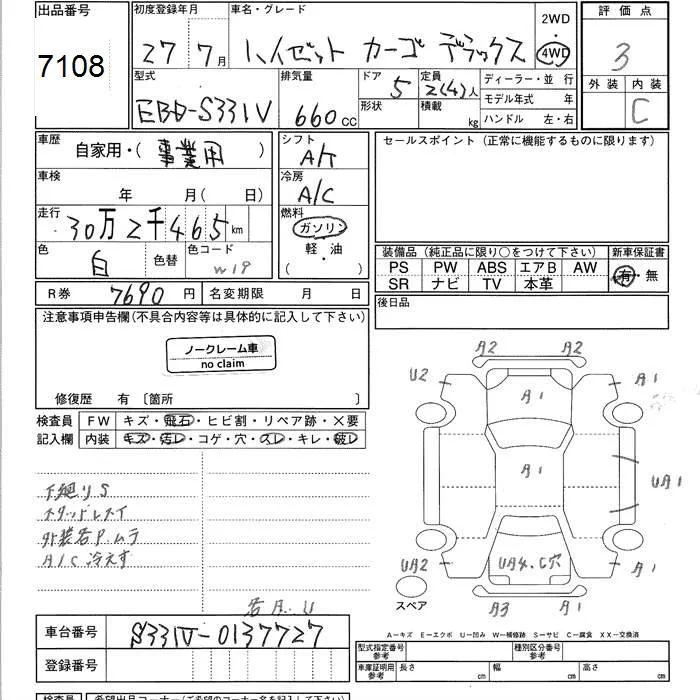 出品番号
7108
初度登録年月
27 7月
車名・グレード
ハイゼット カーゴ デラックス
2WD
・
4WD
評価点
3
外装 内装
C
型式
EBD-S331V
排気量
660 CC
ドア
5
形状
定員
2(4)人
積載
kg
ディーラー・並 行
モデル年式 年
ハンドル 左・右
車歴
自家用・( 事業用 )
車検
年 月( 日)
走行
30万2千465km
色
白
色替
色コード
W19
シフト
A/T
冷房
A/C
燃料
ガソリン
・
軽・油
( )
R券 7690 円
名変期限 月 日
セールスポイント (正常に機能するものに限ります)
装備品 (純正品に限り○をつけて下さい)
新車保証書
PS PW ABS エアB AW
SR ナビ TV 本革
有・無
後日品
注意事項申告欄(不具合内容等は具体的に記入して下さい)
ノークレーム車
no claim
修復歴 有 〔箇所 〕
検査員
記入欄
FW キズ・飛石・ヒビ割・リペア跡・×要
内装 キズ・汚レ・コゲ・穴・スレ・キレ・破レ
下廻りS
スタッドレスT
外装各P.ムラ
A/C冷えず
各月.U
A2 A2
U2 A1 A1
A1
UA1
UA2 UA4.C穴 A1
スペア
A3 A1
A―キズ E―エクボ U―凹み W―補修跡 S―サビ C―腐食 XX―交換済
車台番号
S331V-0137727
登録番号
型式指定番号
参考
種別区分番号
参考
車庫証明用
参考
長さ cm
幅 cm
高さ cm